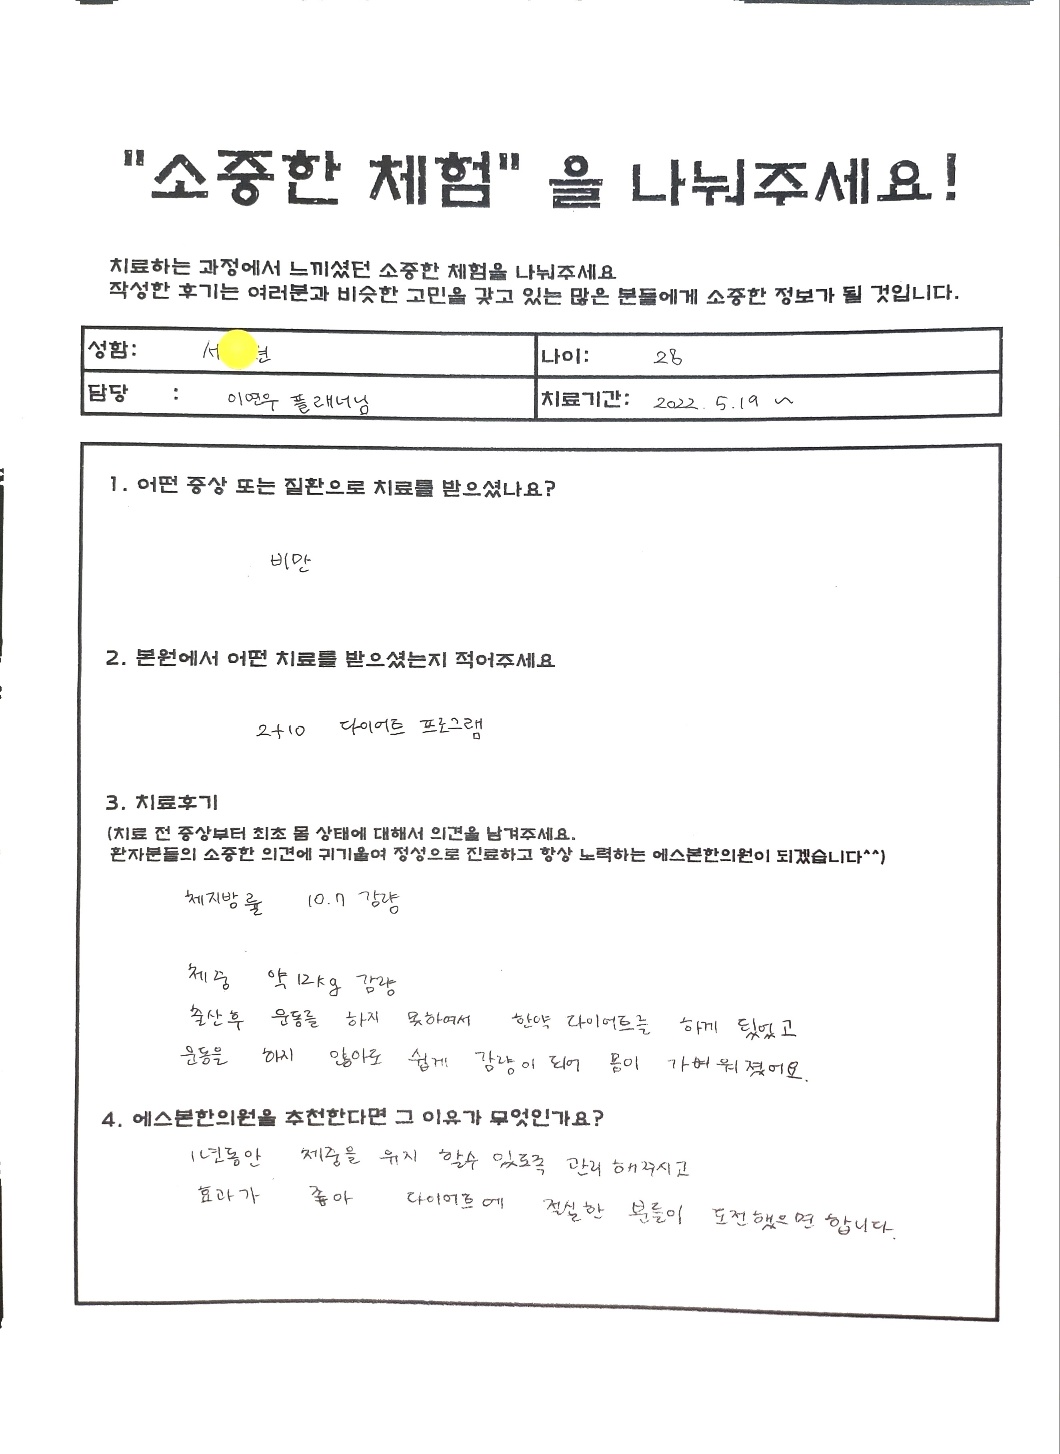 "소중한 체험" 을 나눠주세요!
치료하는 과정에서 느끼셨던 소중한 체험을 나눠주세요
작성한 후기는 여러분과 비슷한 고민을 갖고 있는 많은 분들에게 소중한 정보가 될 것입니다.
성함: 서 현
나이: 28
담당 : 이연우 플래너님
치료기간: 2022. 5.19 ~
1. 어떤 증상 또는 질환으로 치료를 받으셨나요?
비만
2. 본원에서 어떤 치료를 받으셨는지 적어주세요
2+10 다이어트 프로그램
3. 치료후기
(치료 전 증상부터 최초 몸 상태에 대해서 의견을 남겨주세요.
환자분들의 소중한 의견에 귀기울여 정성으로 진료하고 항상 노력하는 에스본한의원이 되겠습니다^^)
체지방률 10.7 감량
체중 약 12kg 감량
출산후 운동를 하지 못하여서 한약 다이어트를 하게 됬었고
운동을 하지 않아도 쉽게 감량이 되어 몸이 가벼워졌어요.
4. 에스본한의원을 추천한다면 그 이유가 무엇인가요?
1년동안 체중을 유지 할수 있도록 관리 해주시고
효과가 좋아 다이어트에 절실한 분들이 도전했으면 합니다.